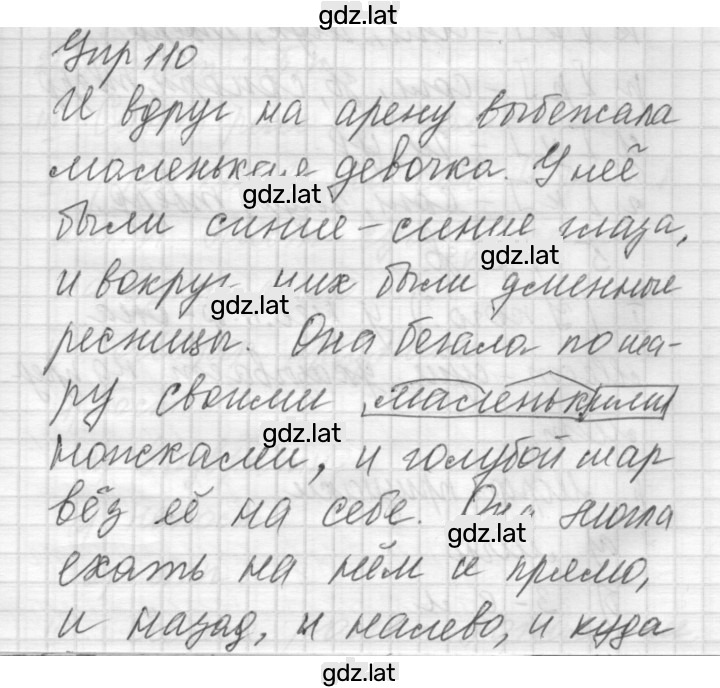 gdz.lat
Упр 110
И вдруг на арену выбежала
маленькая девочка. У неё
gdz.lat
были синие-синие глаза,
gdz.lat
и вокруг них были длинные
gdz.lat
ресницы. Она бегала по ша-
ру своими маленькими
gdz.lat
ножками, и голубой шар
вёз её на себе. Она могла
gdz.lat
ехать на нём и прямо,
и назад, и налево, и куда
gdz.lat